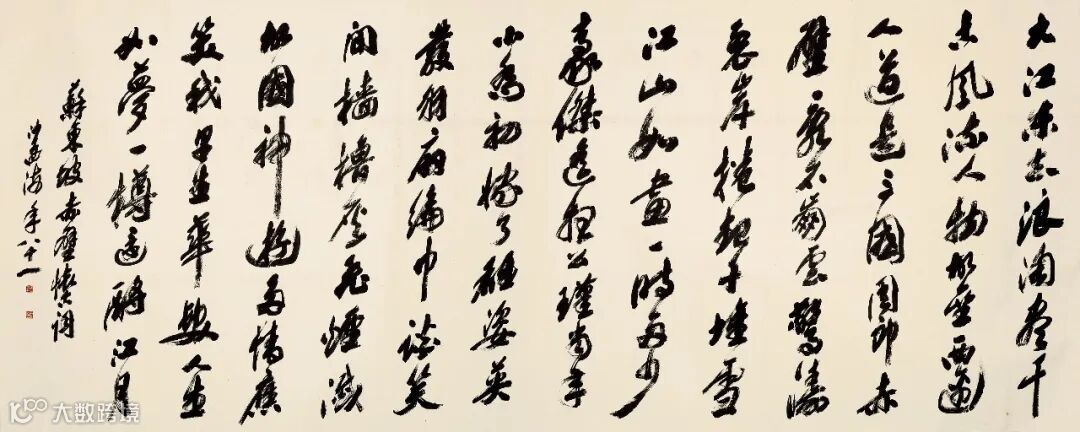 大江東去浪淘盡千
古風流人物故壘西邊
人道是三國周郎赤
壁亂石崩雲驚濤
裂岸捲起千堆雪
江山如畫一時多少
豪傑遙想公瑾當年
小喬初嫁了雄姿英
發羽扇綸巾談笑
間檣櫓灰飛煙滅
故國神遊多情應
笑我早生華髮人生
如夢一樽還酹江月
蘇東坡赤壁懷古詞
沙孟海年八十一
大数跨境